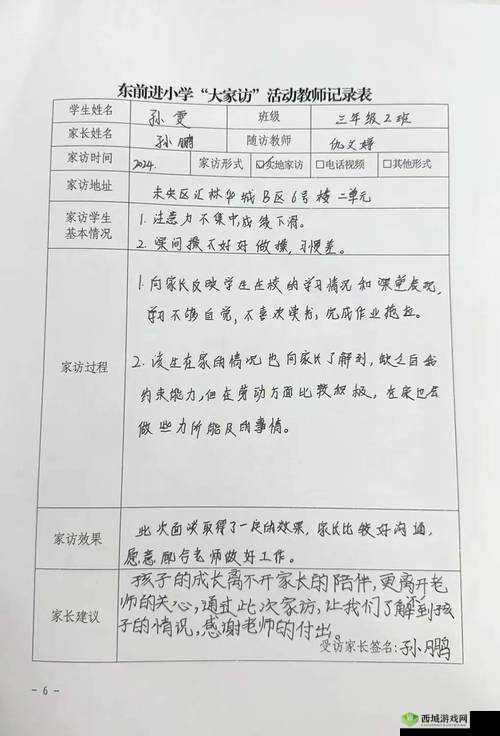 东前进小学“大家访”活动教师记录表
学生姓名 孙雯 班级 三年级2班
家长姓名 孙鹏 随访教师 仇文婷
家访时间 2024. 家访形式 ☑实地家访 □电话视频 □其他形式
家访地址 未央区汇林华城B区6号楼二单元
家访学生基本情况
1. 注意力不集中,成绩下滑。
2. 课间操不好好做操,习惯差。
家访过程
1. 向家长反映学生在校的学习情况和课堂表现,
学习不够自觉,不喜欢读书,完成作业拖拉。
2. 该生在家的情况也向家长了解到,缺乏自我
约束能力,但在劳动方面比较积极,在家也会
做些力所能及的事情。
家访效果
此次面谈取得了一定的效果,家长比较好沟通,
愿意配合老师做好工作。
家长建议
孩子的成长离不开家长的陪伴,更离开老
师的关心,通过此次家访,让我们了解到孩
子的情况,感谢老师的付出。
受访家长签名:孙鹏
- 6 -
西城游戏网